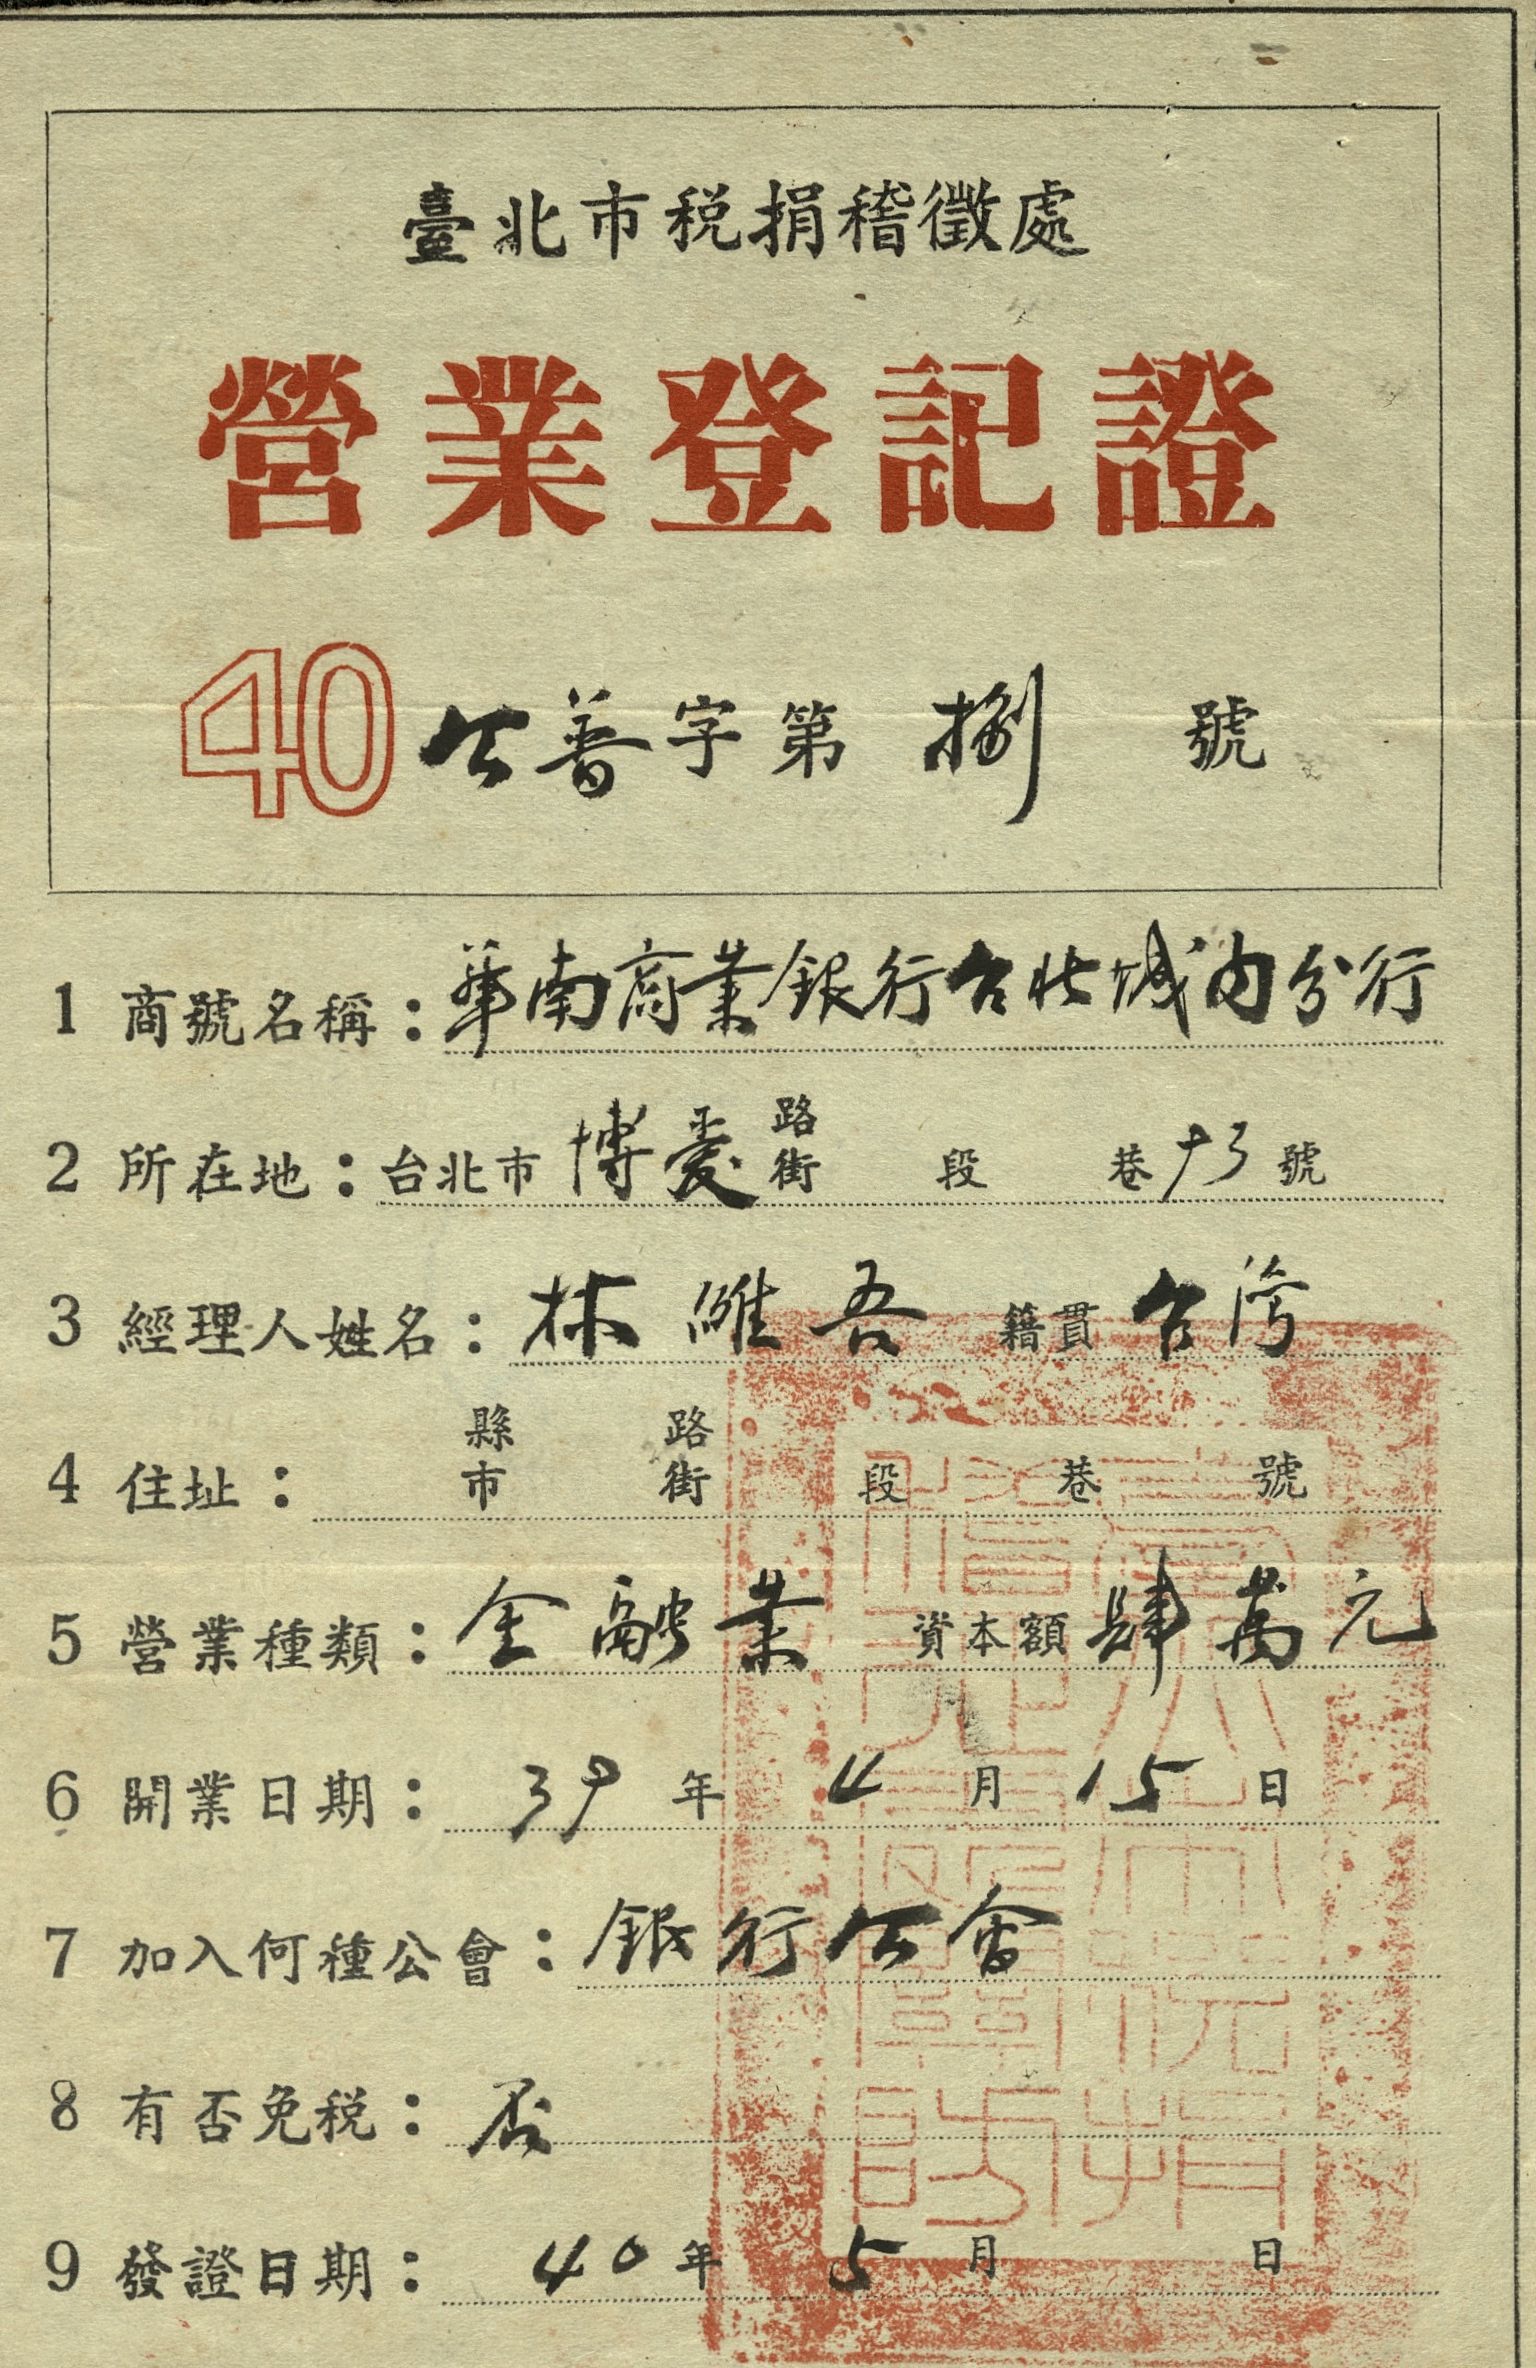 臺北市税捐稽徵處
營業登記證
40公普字第 捌 號
1 商號名稱：華南商業銀行台北城内分行
2 所在地：台北市博愛路街 段 巷 93 號
3 經理人姓名：林維吾 籍貫 台湾
4 住址： 縣市 路街 段 巷 號
5 營業種類：金融業 資本額 肆萬元
6 開業日期： 39 年 4 月 15 日
7 加入何種公會：銀行公會
8 有否免税：否
9 發證日期： 40 年 5 月 日